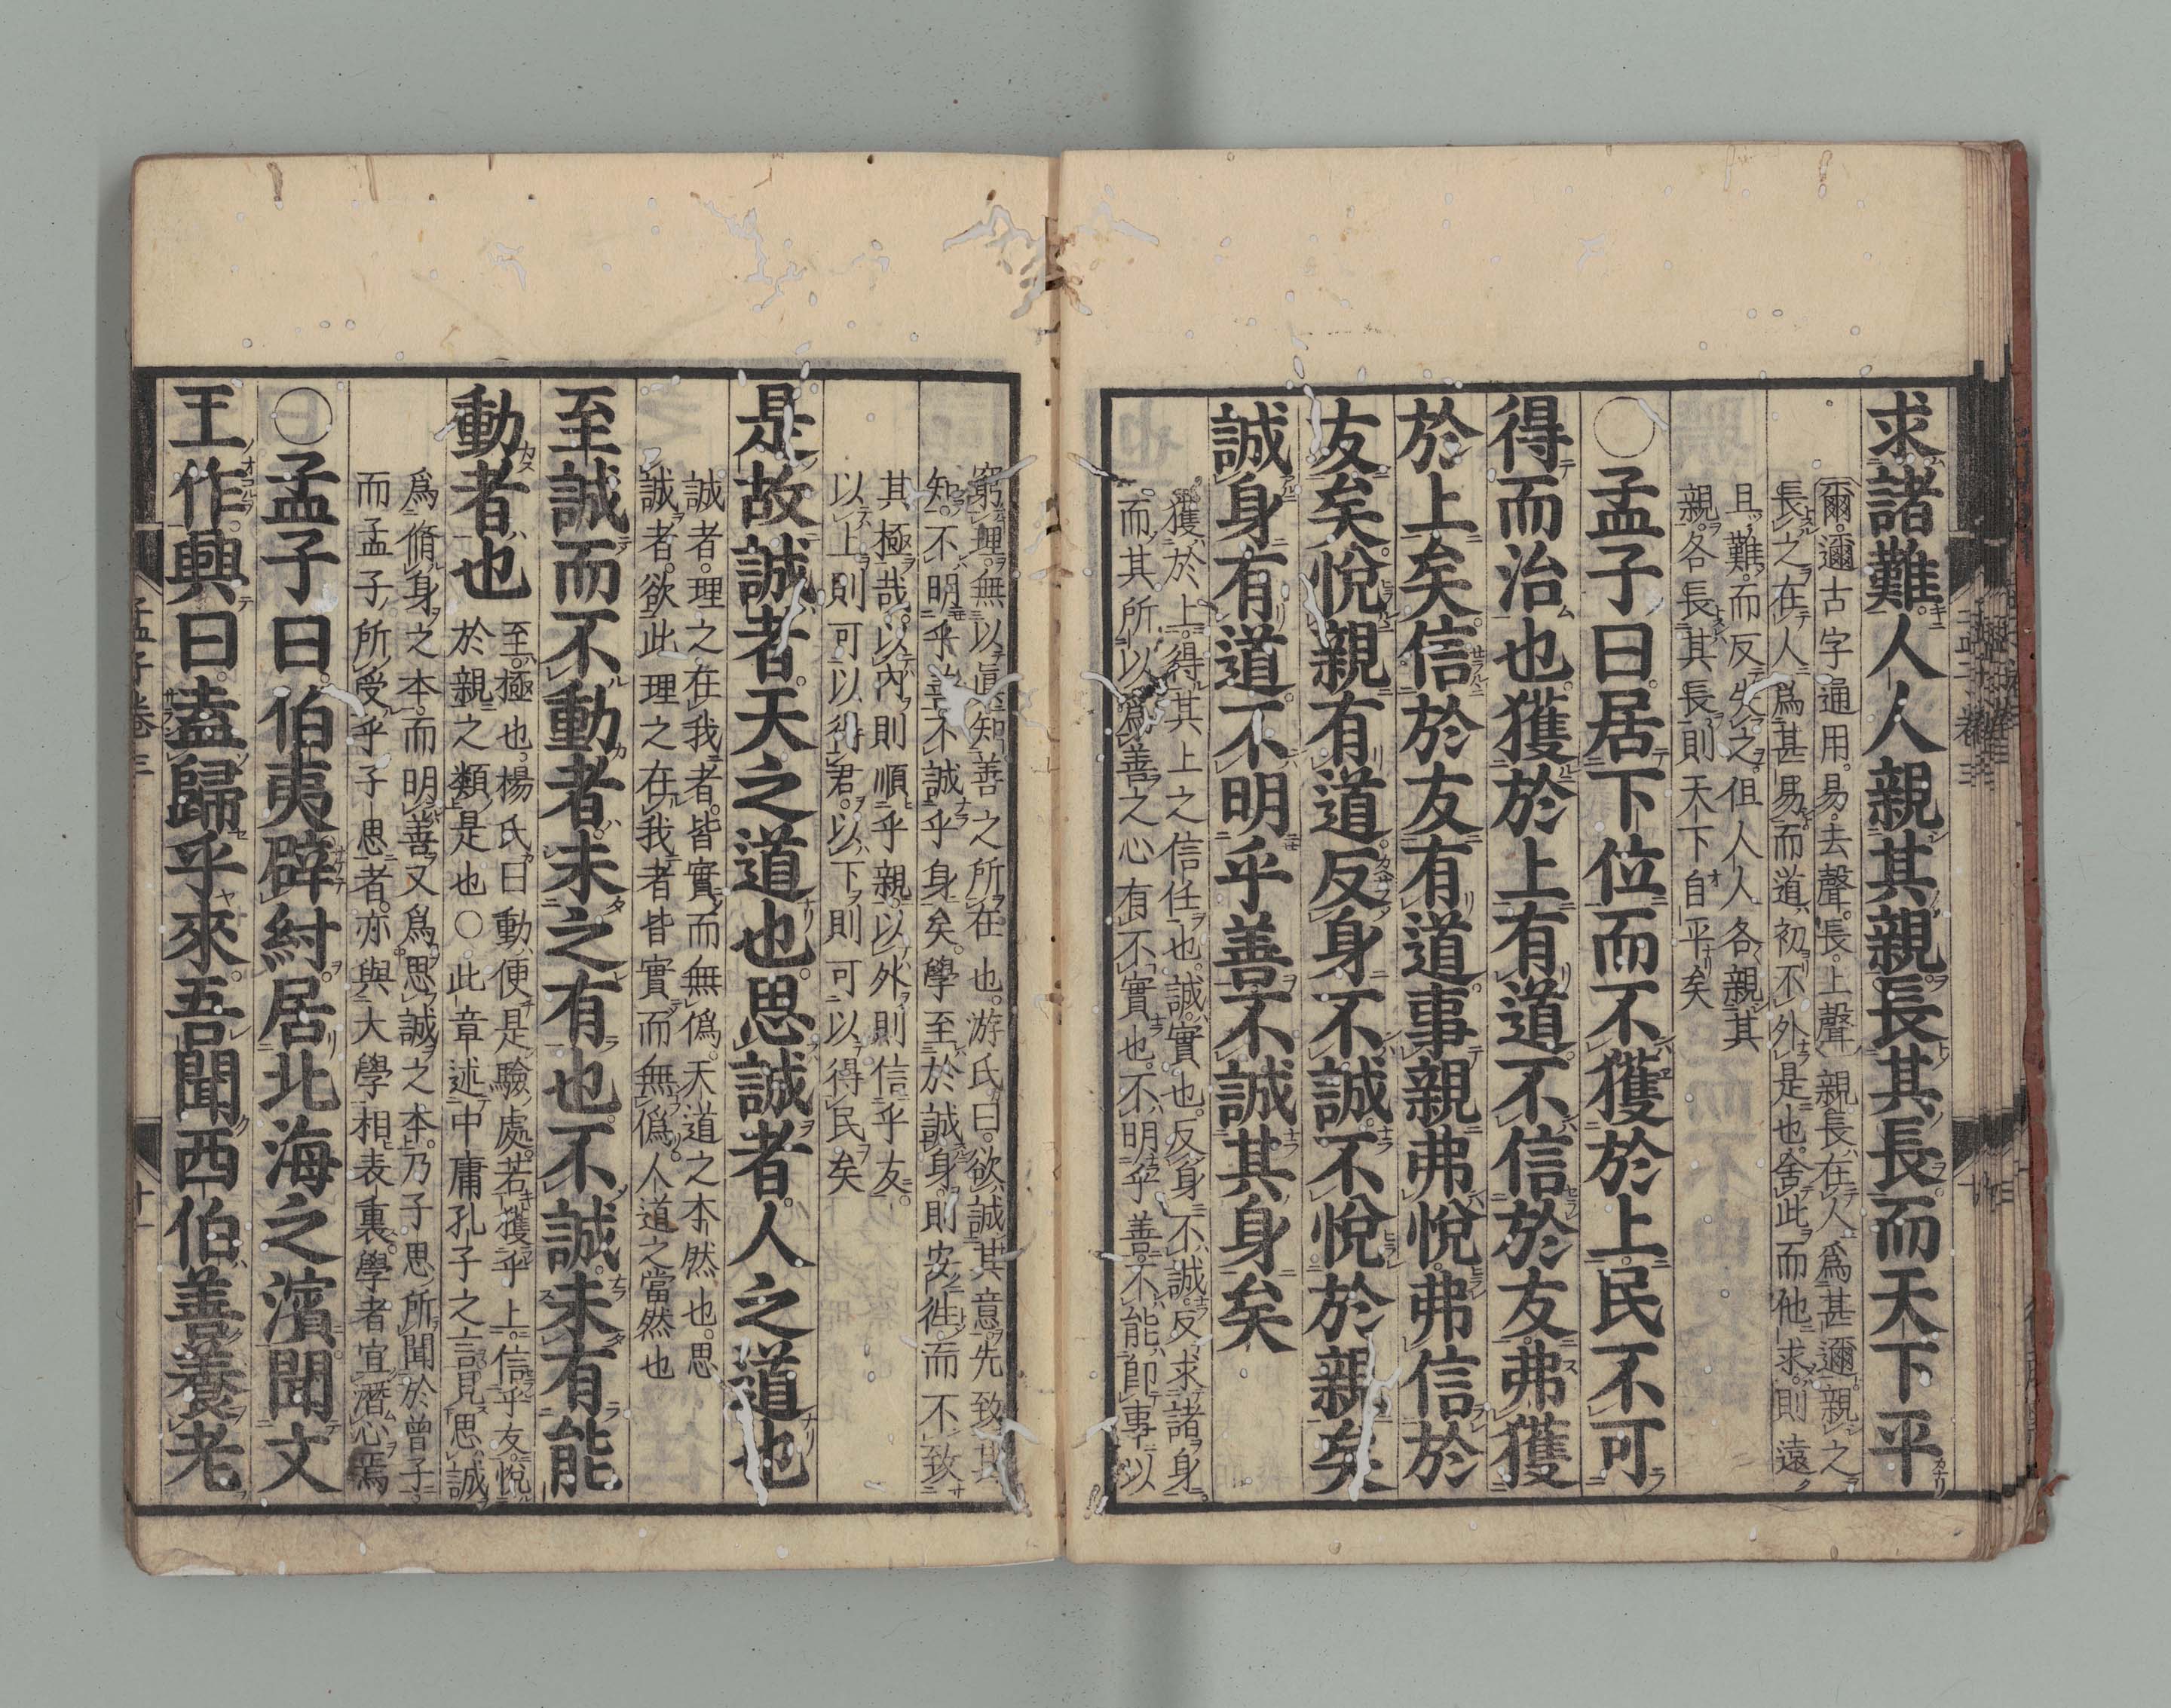 求諸難人人親其親長其長而天下平
爾邇古字通用易去聲長上聲○親長在人爲甚邇親之
長之在人爲甚易而道初不外是也舍此而他求則遠
且難而反失之但人人各親其
親各長其長則天下自平矣
○孟子曰居下位而不獲於上民不可
得而治也獲於上有道不信於友弗獲
於上矣信於友有道事親弗悅弗信於
友矣悅親有道反身不誠不悅於親矣
誠身有道不明乎善不誠其身矣
獲於上得其上之信任也誠實也反身不誠反求諸身
而其所以爲善之心有不實也不明乎善不能卽事以
窮理無以眞知善之所在也游氏曰欲誠其意先致其
知不明乎善不誠乎身矣學至於誠身則安徃而不致
其極哉以內則順乎親以外則信乎友
以上則可以得君以下則可以得民矣
是故誠者天之道也思誠者人之道也
誠者理之在我者皆實而無僞天道之本然也思
誠者欲此理之在我者皆實而無僞人道之當然也
至誠而不動者未之有也不誠未有能
動者也
至極也楊氏曰動便是驗處若獲乎上信乎友悅
於親之類是也○此章述中庸孔子之言見思誠
爲脩身之本而明善又爲思誠之本乃子思所聞於曾子
而孟子所受乎子思者亦與大學相表裏學者宜潛心焉
○孟子曰伯夷辟紂居北海之濱聞文
王作興曰盍歸乎來吾聞西伯善養老
孟子卷三